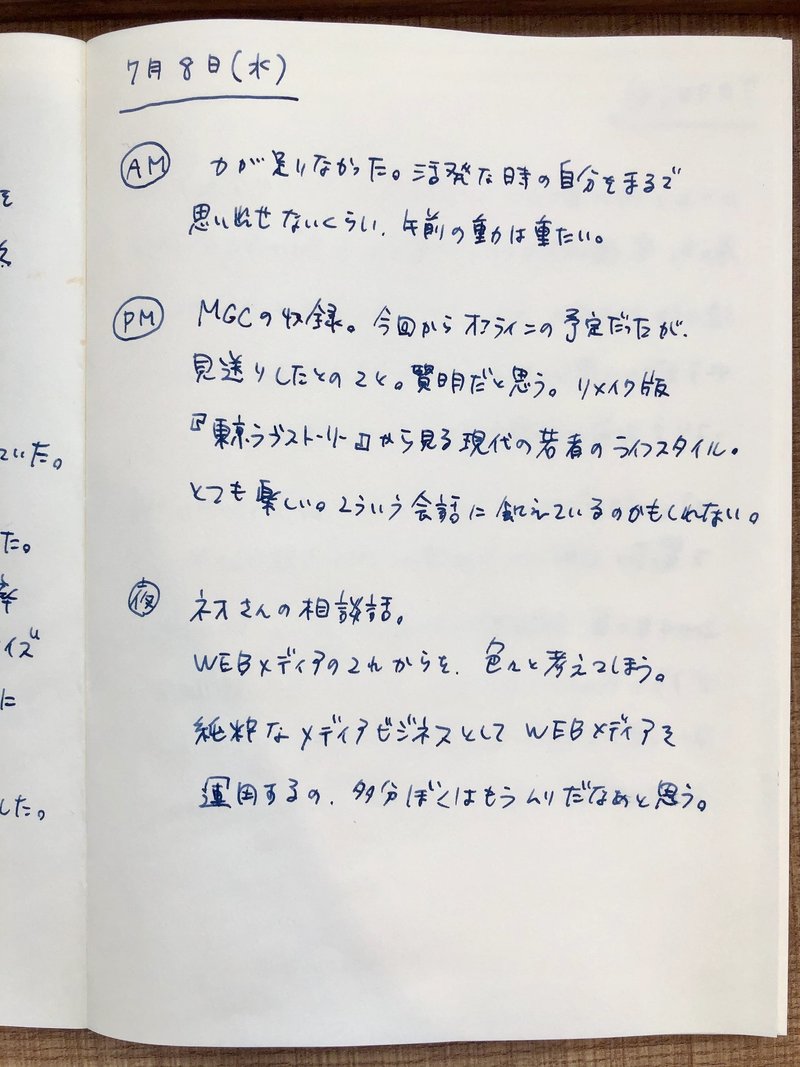 を
た。
いた。
イズ
に
した。
7月8日(水)
AM 力が足りなかった。活発な時の自分をまるで
思い出せないくらい、午前の動は重たい。
PM MGCの収録。今回からオフラインの予定だったが、
見送りしたとのこと。賢明だと思う。リメイク版
『東京ラブストーリー』から見る現代の若者のライフスタイル。
とても楽しい。こういう会話に飢えているのかもしれない。
夜 ネオさんの相談話。
WEBメディアのこれからを、色々と考えてしまう。
純粋なメディアビジネスとしてWEBメディアを
運用するの、多分ぼくはもうムリだなぁと思う。